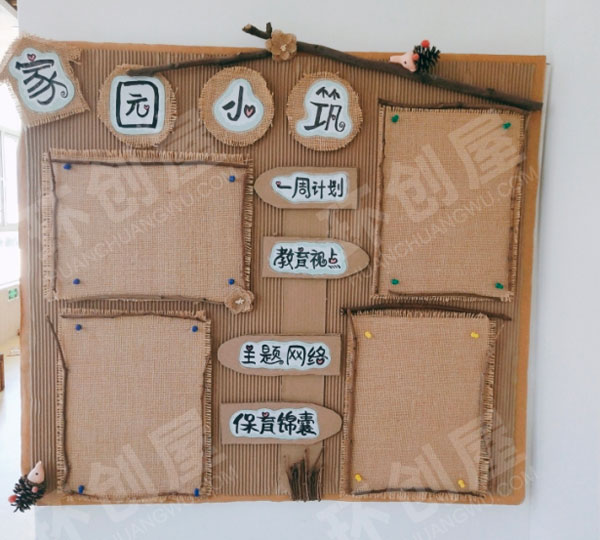 家园小筑
一周计划
教育视点
主题网络
保育锦囊
环创屋
HUANCHUANGWU.COM
环创屋
HUANCHUANGWU.COM
环创屋
HUANCHUANGWU.COM
环创屋
HUANCHUANGWU.COM